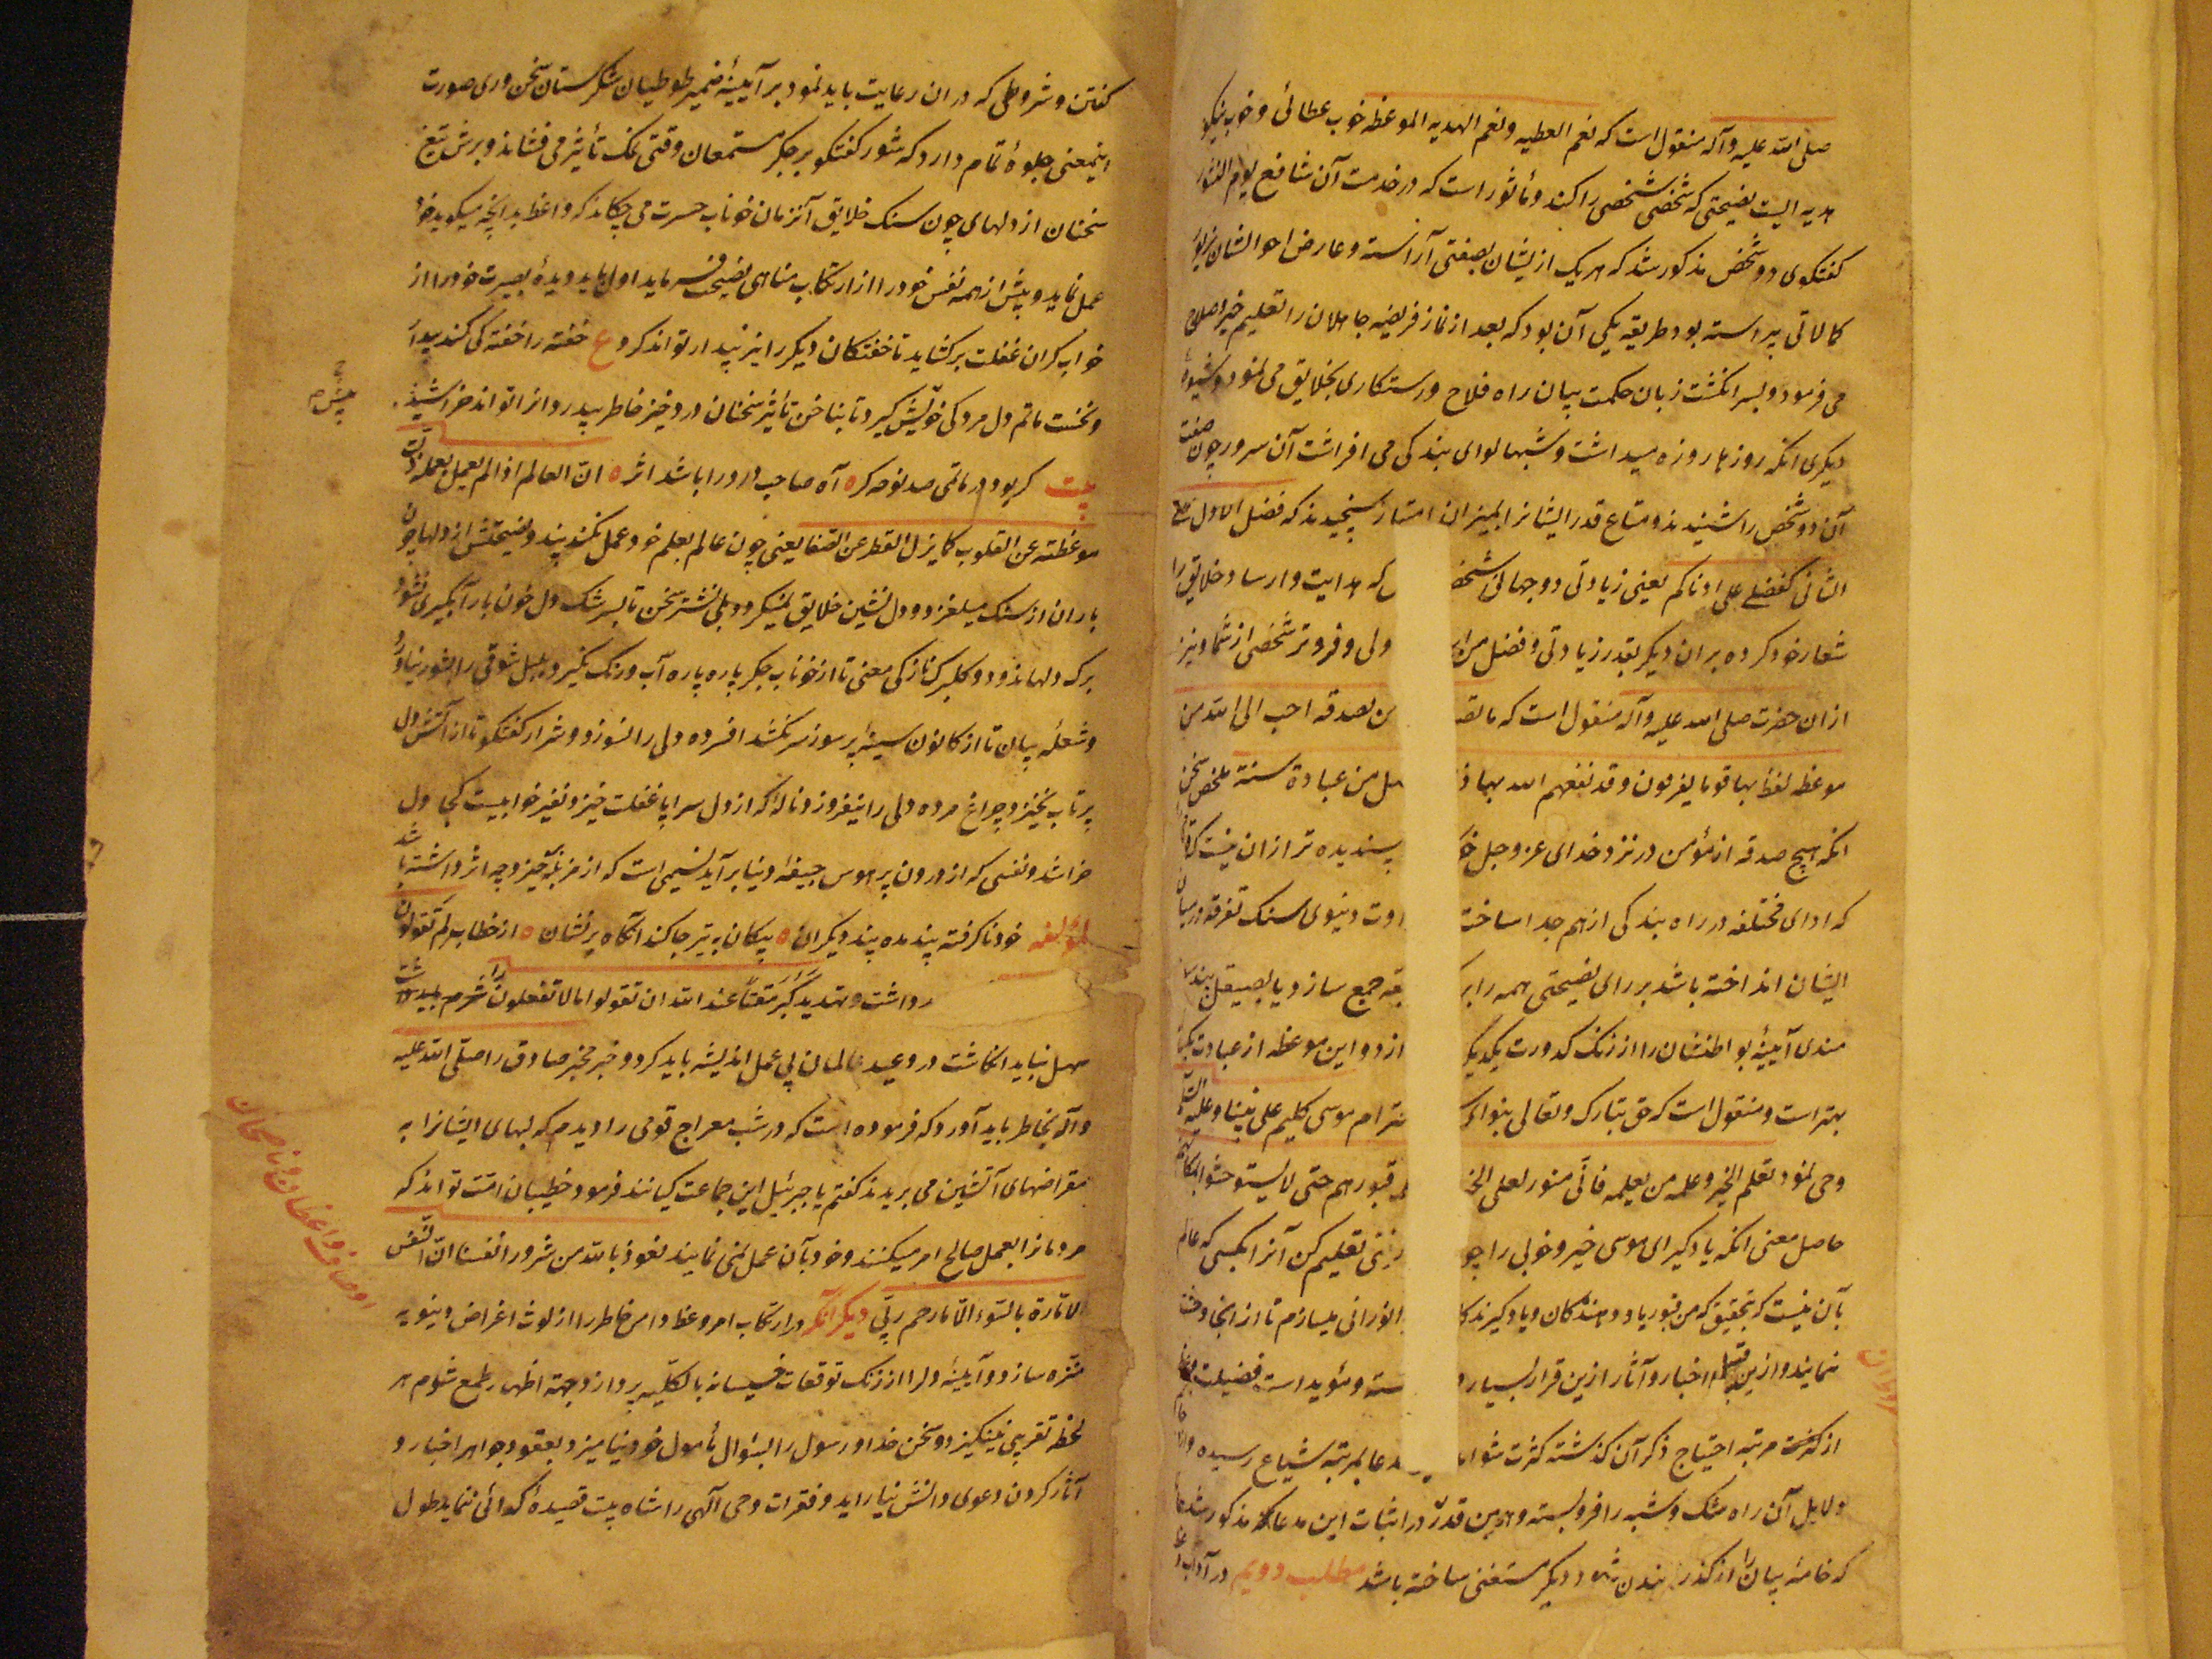 صلی الله علیه وآله منقول است که نعم العطیه ونعم الهدیه الموعظه خوب عطائی وخوب نیکو
هدیه ایست نصیحتی که شخصی شخصی را کند ومأثور است که در خدمت آن شافع یوم النشور
کفتکوی دو شخص مذکور شد که هریک از یشان بصفتی آراسته وعارض احوالشان بزیور
کمالاتی پیراسته بود طریقه یکی آن بود که بعد از نماز فریضه جاهلان را تعلیم خیر واصلاح
می فرمود وبسر انکشت زبان حکمت بیان راه فلاح ورستکاری بخلایق می نمود وشیوهٔ
دیکری انکه روزها روزه میداشت وشبها لوای بندکی می افراشت آن سرور چون صفت
آن دو شخص را شنیدند ومتاع قدر ایشانرا بمیزان امتیاز سنجیدند که فضل الاول علی
الثانی کفضلی علی ادناکم یعنی زیادتی دو جهانی که هدایت وارساد خلایق را
شعار خود کرده بران دیکر بقدر زیادتی وفضل من ولی وفروتر شخصی از شما ونیز
ازان حضرت صلی الله علیه وآله منقول است که ما تصد من بصدقه احب الی الله من
موعظه لفظ بها قوما یفرقون وقد نفعهم الله بها من عبادة سنة ملخص سخن
انکه هیچ صدقه از مؤمن در نزد خدای عزوجل پسندیده تر ازان نیست که
که ادای مختلفه در راه بندکی از هم جدا ساخت دنیوی سنک تفرقه در میان
ایشان انداخته باشد برای نصیحتی همه را جمع سازد یا بصیقل پند
مندی آیینهٔ بواطنشان را از زنک کدورت یکدیکر ازدو این موعظه از عبادت یکساله
بهتر است ومنقول است که حق تبارک وتعالی موسی کلیم علی نبینا وعلیه السلام
وحی نمود تعلم الخیر وعلمه من یعلمه فانی منور لعلمی قبورهم حتی لایستوحشوا بمکانهم
حاصل معنی انکه یاد کیر ای موسی خیر وخوبی را تعلیم کن آنرا بکسی که عالم
بآن نیست که بتحقیق که من قبور یاد دهندکان ویاد کیرندکان نورانی میسازم تا از انجا وحشت
نمایند وازین قبیل اخبار وآثار ازین قرار بسیار ومؤید است فضیلت
از کثرت مرتبه احتیاج ذکر آن کذشته کثرت شواهد بمرتبه شیاع رسیده
دلایل آن راه شک وشبه را فرو بسته وهمین قدر در اثبات این مدعا که مذکور شد
که خامهٔ بیان را از کذر دیکر مستغنی ساخته باشد مطلب دویم در آداب
کفتن وشروطی که دران رعایت باید نمود بر آیینهٔ ضمیر طوطیان شکرستان سخن وری صورت
اینمعنی جلوهٔ تمام دارد که شور کفتکو بر جکر مستمعان وقتی نمک تأثیر می فشاند وبرش تیغ
سخنان از دلهای چون سنک خلایق آنزمان خوناب حسرت می چکاند که واعظ بدانچه میکوید خود
عمل نماید وپیش از همه نفس خود را از ارتکاب مناهی نصیحت فرماید اول باید دیدهٔ بصیرت خود را از
خواب کران غفلت برکشاید تا خفتکان دیکر را نیز بیدار تواند کرد ع خفته را خفته کی کند بیدار
ونخست ماتم دل مردکی خویش کیرد تا بناخن تأثیر سخنان درد خیز خاطر بیدردانرا تواند خراشید
بیت کر بود در ماتمی صد نوحه کر ه آه صاحب درد را باشد اثر ه ان العالم اذا لم یعمل بعلمه زلت
موعظته عن القلوب کما یزل القطر عن الصفا یعنی چون عالم بعلم خود عمل نکند پند ونصیحتش از دلها چون
باران از سنک میلغزد ودل نشین خلایق نمیکردد بلی نشتر سخن تا بسر شک دل خون بار آبکیری نشود
برک دلها نرود وکلبرک نازکی معنی تا از خوناب جکر پاره پاره آب ورنک نکیرد بلبل شوقی را بشور نیاورد
وشعلهٔ بیان تا از کانون سینهٔ پر سوز سر نکشد افسرده دلی را نسوزد وشرار کفتکو تا از آتش دل
پر تاب نخیزد چراغ مرده دلی را نیفروزد ناله که از دل سراپا غفلت خیزد نفیر خوابیست کجا دل
خراشد ونفسی که از درون پر هوس جیفهٔ دنیا بر آید نسیمی است که از مزبله خیزد چه اثر داشته باشد
لمؤلفه خود نا کرفته پند مده پند دیکران ه پیکان به تیر جا کند انکاه بر نشان ه از خطاب لم تقولون
رواشت وتهدید کبر مقتا عند الله ان تقولوا ما لا تفعلون را شرم باید داشت
سهل نباید انکاشت در وعید عالمان بی عمل اندیشه باید کرد وخبر مخبر صادق را صلی الله علیه
وآله بخاطر باید آورد که فرموده است که در شب معراج قومی را دیدم که لبهای ایشانرا به
مقراضهای آتشین می بریدند کفتم یا جبرئیل این جماعت کیانند فرمود خطیبان امت تواند که
مردمانرا بعمل صالح امر میکنند وخود بآن عمل نمی نمایند نعوذ بالله من شرور انفسنا ان النفس
لامارة بالسوء الا ما رحم ربی دیکر آنکه در ارتکاب امر وعظ دامن خاطر را از لوث اغراض دنیویه
منزه سازد وآیینهٔ دل را از زنک توقعات خسیسانه بالکلیه پردازد وجهة اظهار طمع شوم هر
لحظه تقریبی نینکیزد وسخن خدا ورسول را بسؤال مأمول خود نیامیزد وبعقود جواهر اخبار و
آثار کردن دعوی دانش نیاراید وفقرات وحی الهی را شاه بیت قصیدهٔ کدائی ننماید طول
اوصاف واعظان وناصحان